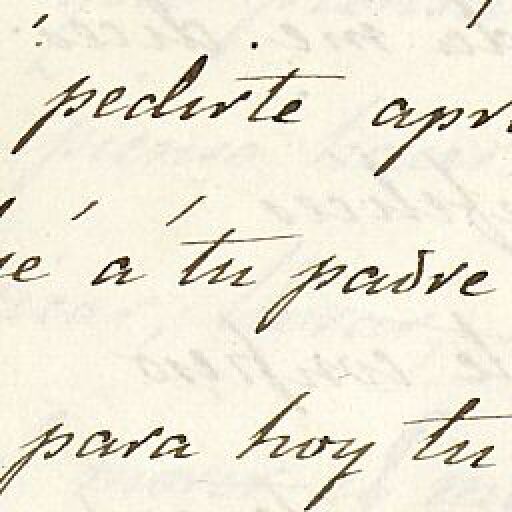 pedirte apr
é á tu padre
para hoy tu